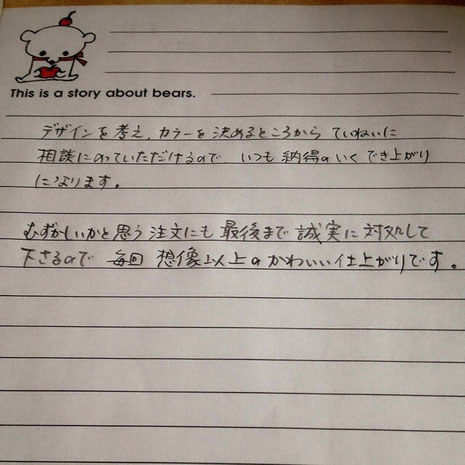 This is a story about bears.
デザインを考え、カラーを決めるところから ていねいに
相談にのっていただけるので いつも 納得のいく でき上がり
になります。
むずかしいかと思う注文にも 最後まで 誠実に 対処して
下さるので 毎回 想像以上の かわいい仕上がりです。